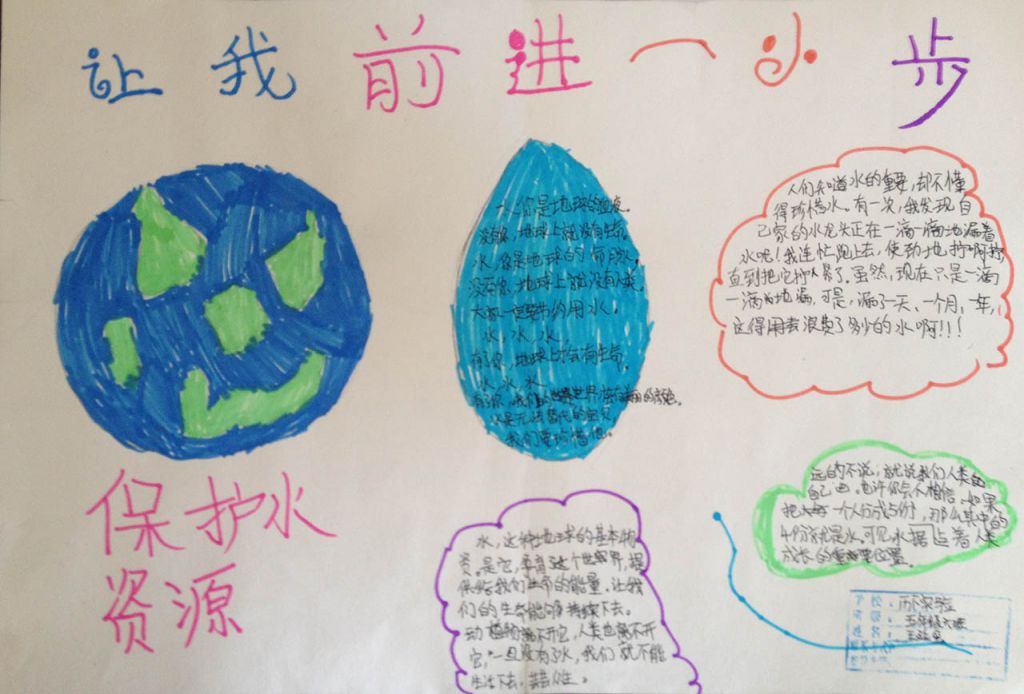 让我前进一小步
水,你是地球的血液。
没有你,地球上就没有生命。
水,你是地球的命脉。
没有你,地球上就没有人类。
大家一定要节约用水。
水,水,水,
有了你,地球上才会有生命。
水,水,水
水是无法替代的宝贝
我们要珍惜他。
人们知道水的重要,却不懂
得珍惜水。有一次,我发现自
己家的水龙头正在一滴一滴地漏着
水呢!我连忙跑上去,使劲地拧啊拧
直到把它拧紧了。虽然,现在只是一滴
一滴地漏,可是,漏了一天、一个月,一年,
这得用去浪费了多少的水啊!!!
保护水
资源
水,这种地球的基本物
质。是它,孕育这个世界,提
供给我们生命的能量,让我
们的生命能够持续下去。
动植物离不开它,人类也离不开
它,一旦没有了水,我们就不能
生活下去
远的不说,就说我们人类的
自己吧,也许你会不相信,如果
把 一个人分成5份,那么其中的
4份就是水,可见水据占着人类
成长的重要位置。
学校:
班级:五年级六班
姓名: